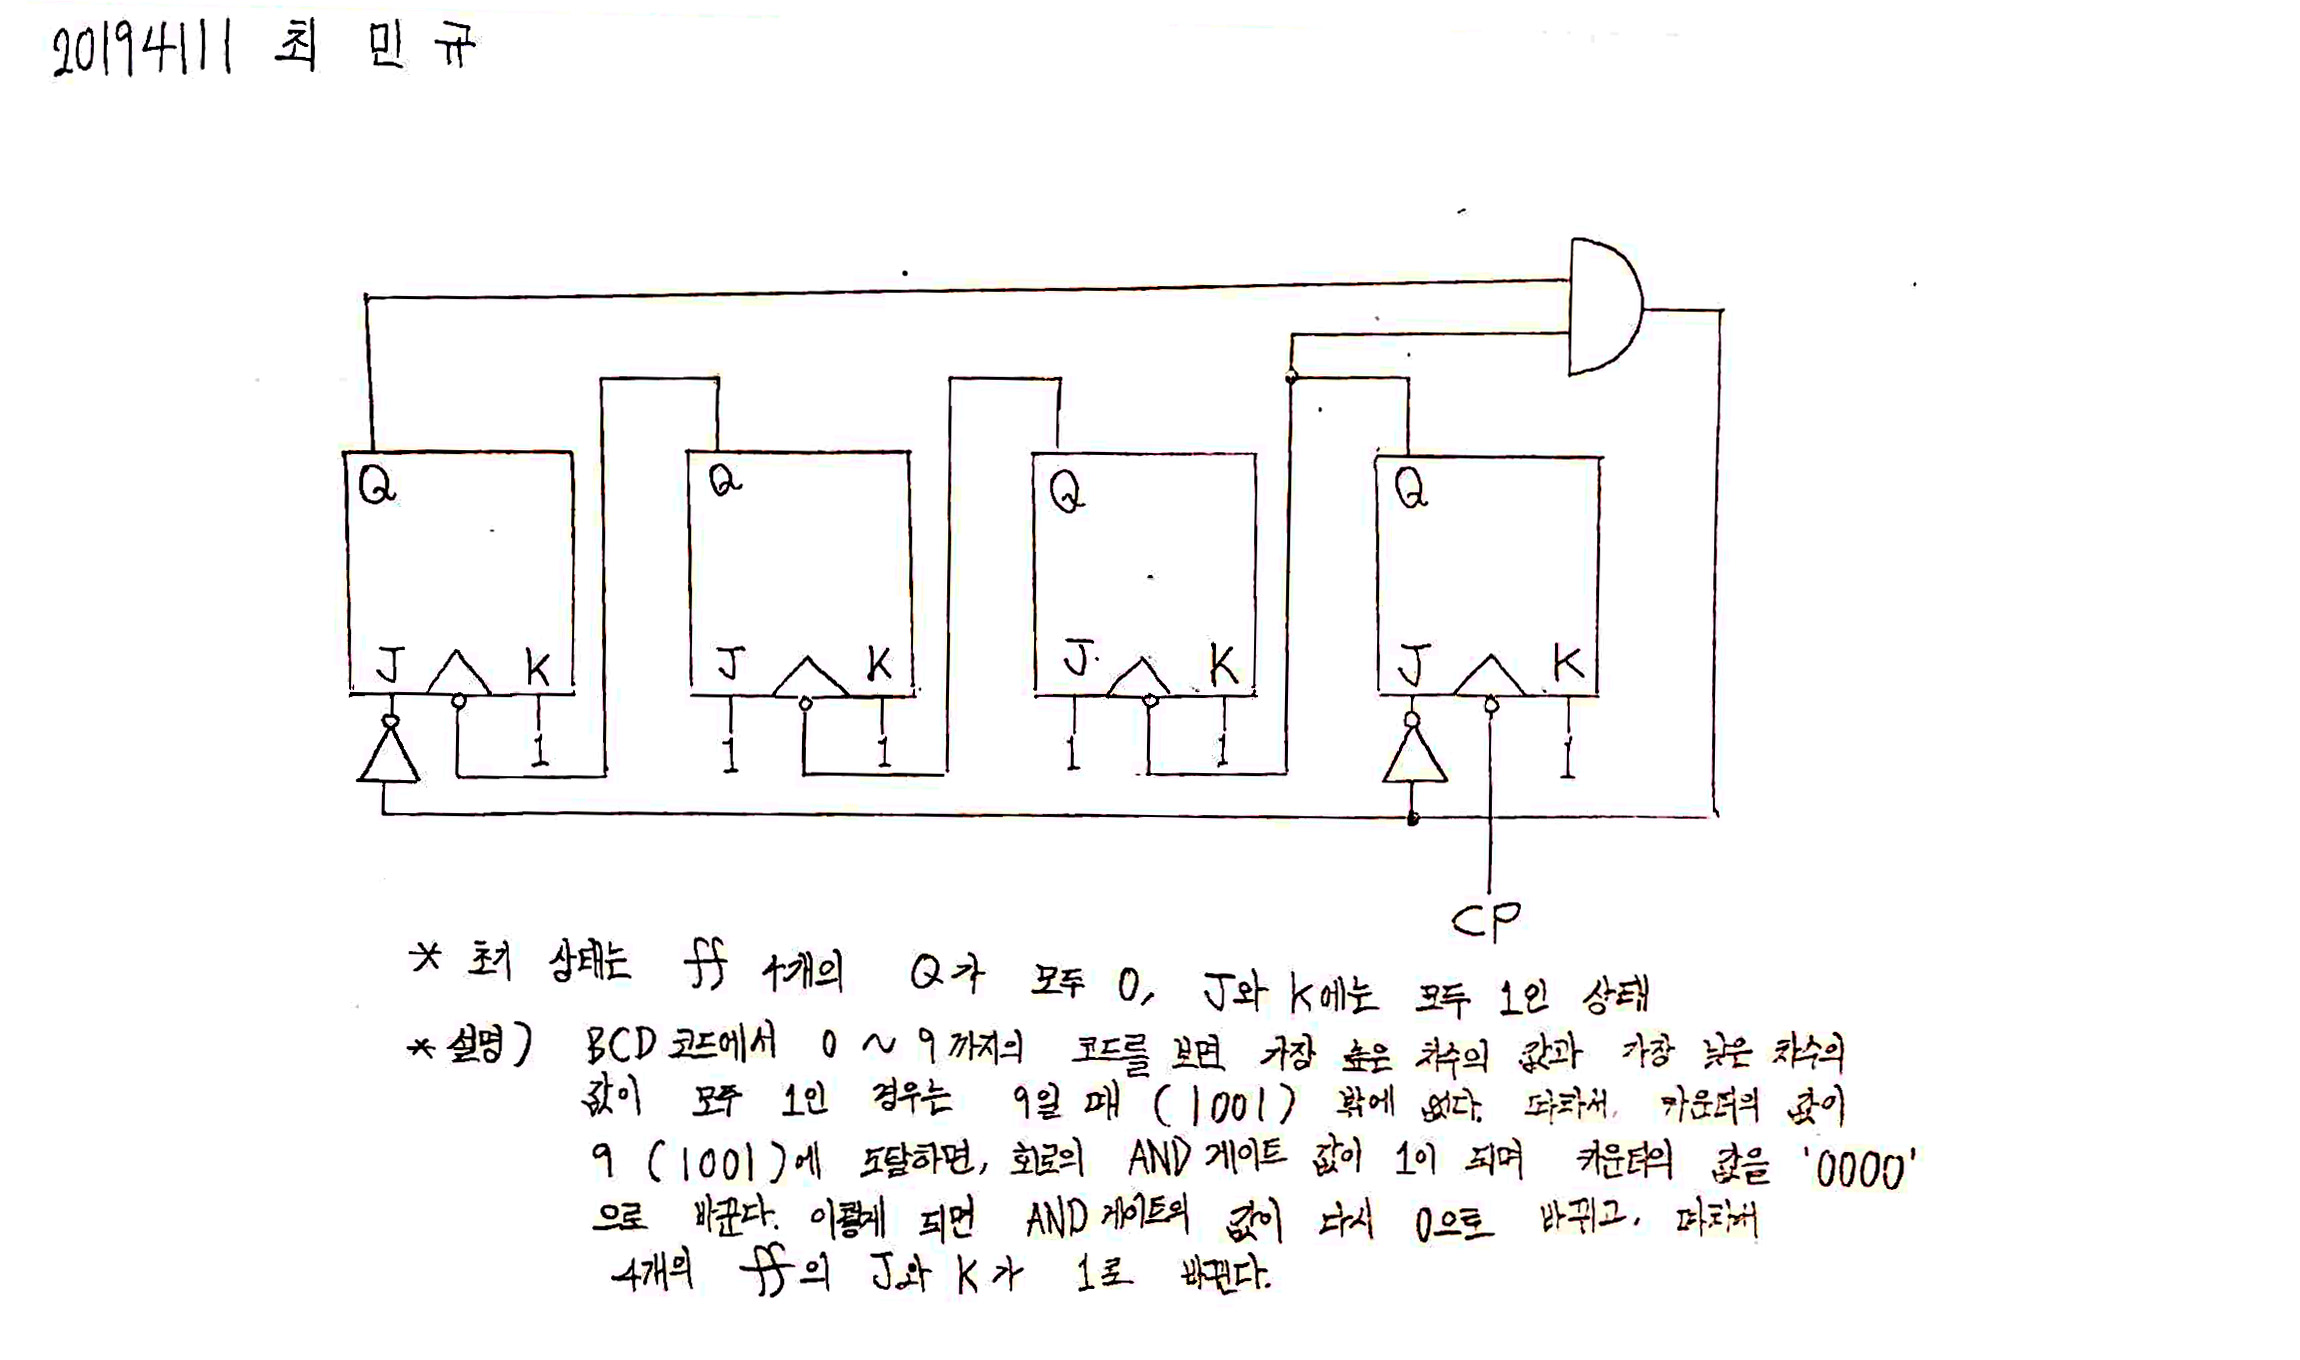 20194111 최 민 규
Q Q Q Q
J K J K J K J K
1 1 1 1 1 1
CP
* 초기 상태는 ff 4개의 Q가 모두 0, J와 K에는 모두 1인 상태
* 설명) BCD 코드에서 0 ~ 9까지의 코드를 보면 가장 높은 차수의 값과 가장 낮은 차수의
값이 모두 1인 경우는 9일 때 (1001) 밖에 없다. 따라서, 카운터의 값이
9 (1001)에 도달하면, 회로의 AND 게이트 값이 1이 되며 카운터의 값을 '0000'
으로 바꾼다. 이렇게 되면 AND 게이트의 값이 다시 0으로 바뀌고, 따라서
4개의 ff의 J와 K가 1로 바뀐다.